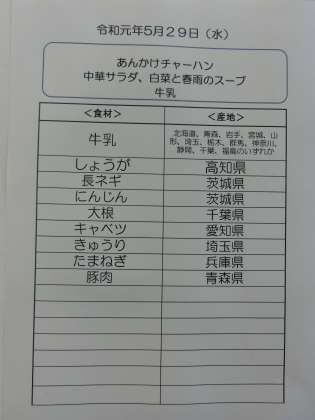 令和元年5月29日（水）
あんかけチャーハン
中華サラダ、白菜と春雨のスープ
牛乳
＜食材＞ ＜産地＞
牛乳 北海道、青森、岩手、宮城、山
形、埼玉、栃木、群馬、神奈川、
静岡、千葉、福島のいずれか
しょうが 高知県
長ネギ 茨城県
にんじん 茨城県
大根 千葉県
キャベツ 愛知県
きゅうり 埼玉県
たまねぎ 兵庫県
豚肉 青森県